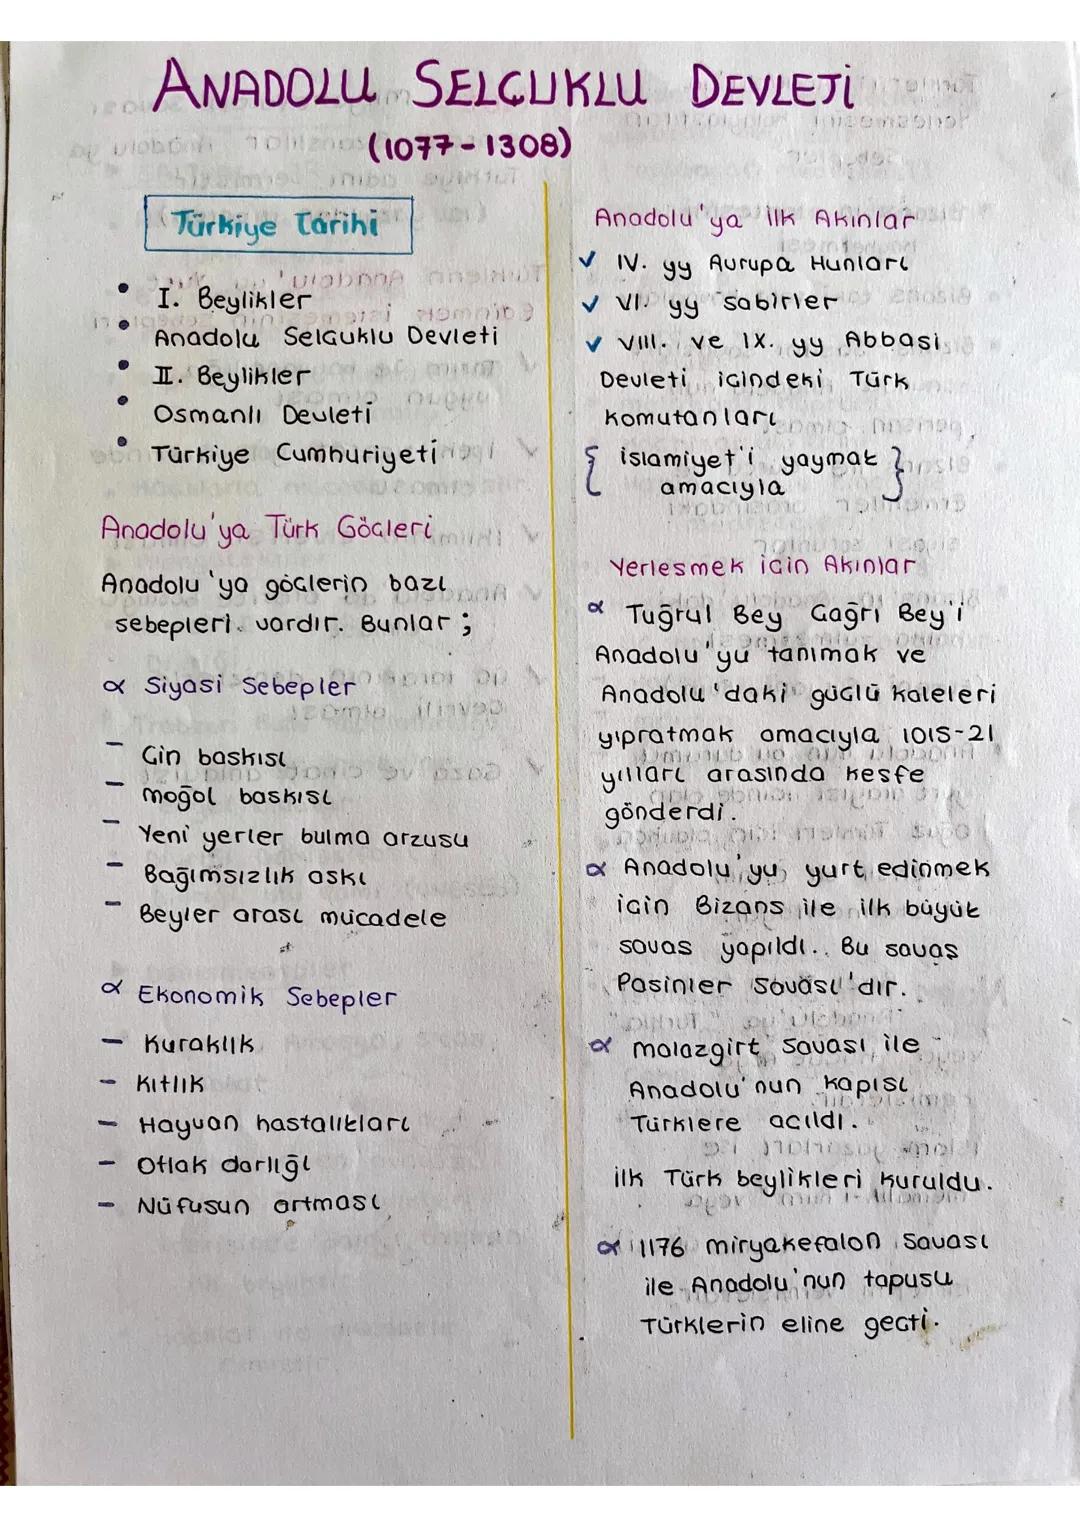 ANADOLU SELÇUKLU DEVLETİ
(1077-1308)
Türkiye Tarihi
• I. Beylikler
• Anadolu Selçuklu Devleti
• II. Beylikler
• Osmanlı Devleti
• Türkiye Cumhuriyeti
Anadolu'ya Türk Göçleri
Anadolu'ya göçlerin bazı
sebepleri vardır. Bunlar ;
α Siyasi Sebepler
- Çin baskısı
- moğol baskısı
- Yeni yerler bulma arzusu
- Bağımsızlık aşkı
- Beyler arası mücadele
α Ekonomik Sebepler
- Kuraklık
- Kıtlık
- Hayvan hastalıkları
- Otlak darlığı
- Nüfusun artması
Anadolu'ya ilk Akınlar
✓ IV. yy Avrupa Hunları
✓ VI. yy sabirler
✓ VIII. ve IX. yy Abbasi
Devleti içindeki Türk
komutanları
{ islamiyet'i yaymak }
amacıyla
Yerleşmek için Akınlar
α Tuğrul Bey Çağrı Bey'i
Anadolu'yu tanımak ve
Anadolu'daki güçlü kaleleri
yıpratmak amacıyla 1015-21
yılları arasında keşfe
gönderdi.
α Anadolu'yu yurt edinmek
için Bizans ile ilk büyük
savaş yapıldı. Bu savaş
Pasinler Savaşı'dır.
α malazgirt savaşı ile
Anadolu'nun kapısı
Türklere açıldı.
ilk Türk beylikleri kuruldu.
α 1176 miryakefalon Savaşı
ile Anadolu'nun tapusu
Türklerin eline geçti.